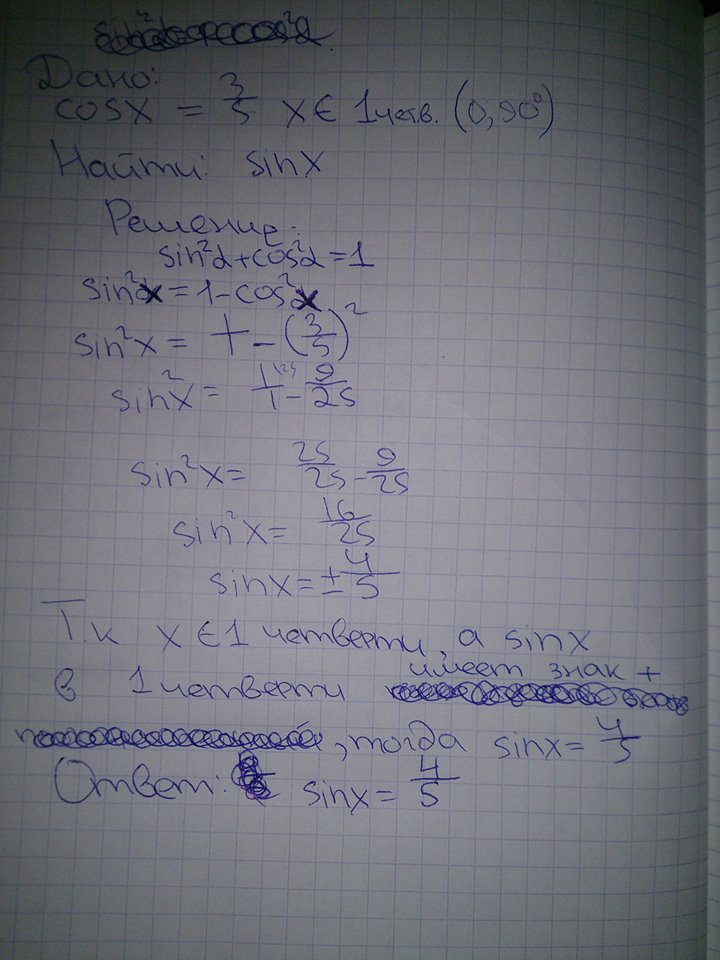 Дано:
cosx = 3/5 x ∈ 1четв. (0, 90°)
Найти: sinx
Решение:
sin²α+cos²α=1
sin²x=1-cos²x
sin²x= 1-(3/5)²
sin²x= 1/1\25 - 9/25
sin²x= 25/25 - 9/25
sin²x= 16/25
sinx=±4/5
Т.к x ∈ 1 четверти, а sinx
в 1 четверти имеет знак +
, тогда sinx= 4/5
Ответ: sinx= 4/5